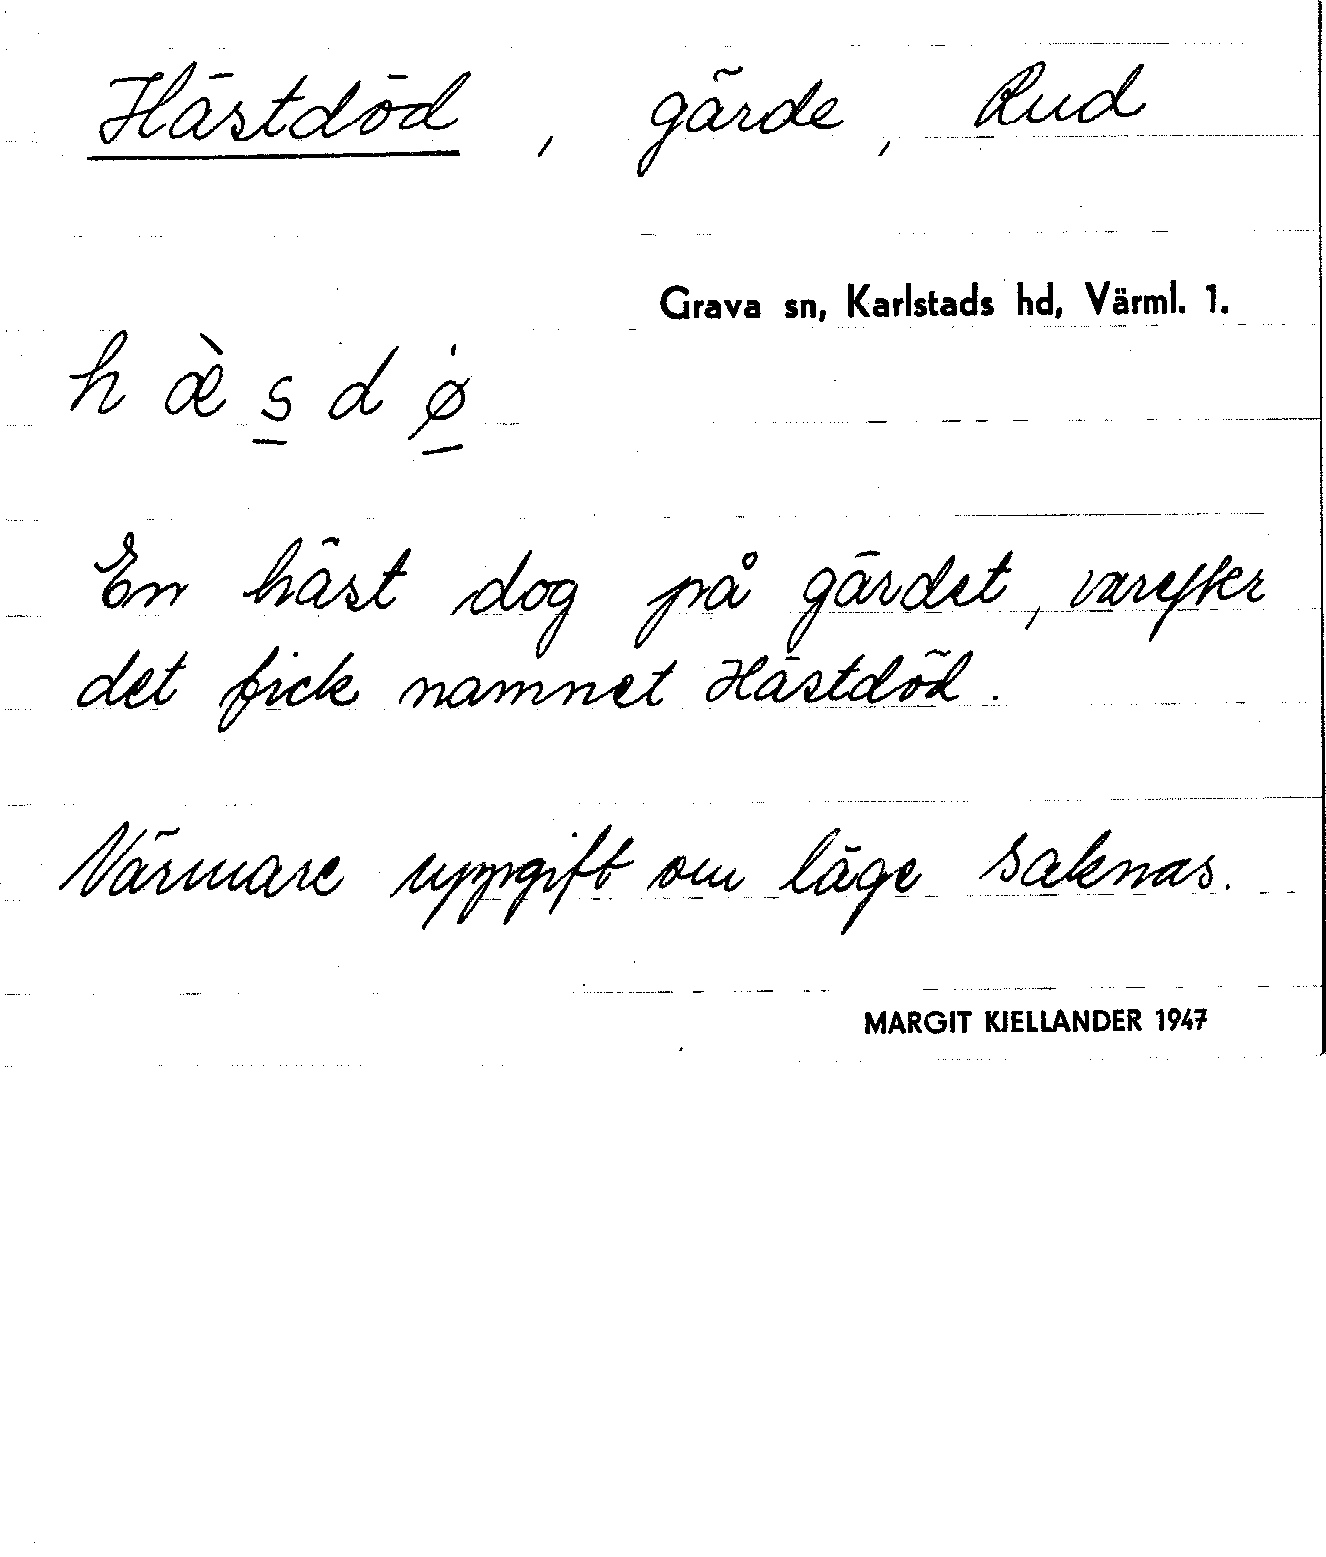 Hästdöd, gärde, Rud
Grava sn, Karlstads hd, Värml. 1.
h æ̀ s̲ d ø̲̇
En häst dog på gärdet, varefter
det fick namnet Hästdöd.
Närmare uppgift om läge saknas.
MARGIT KJELLANDER 1947